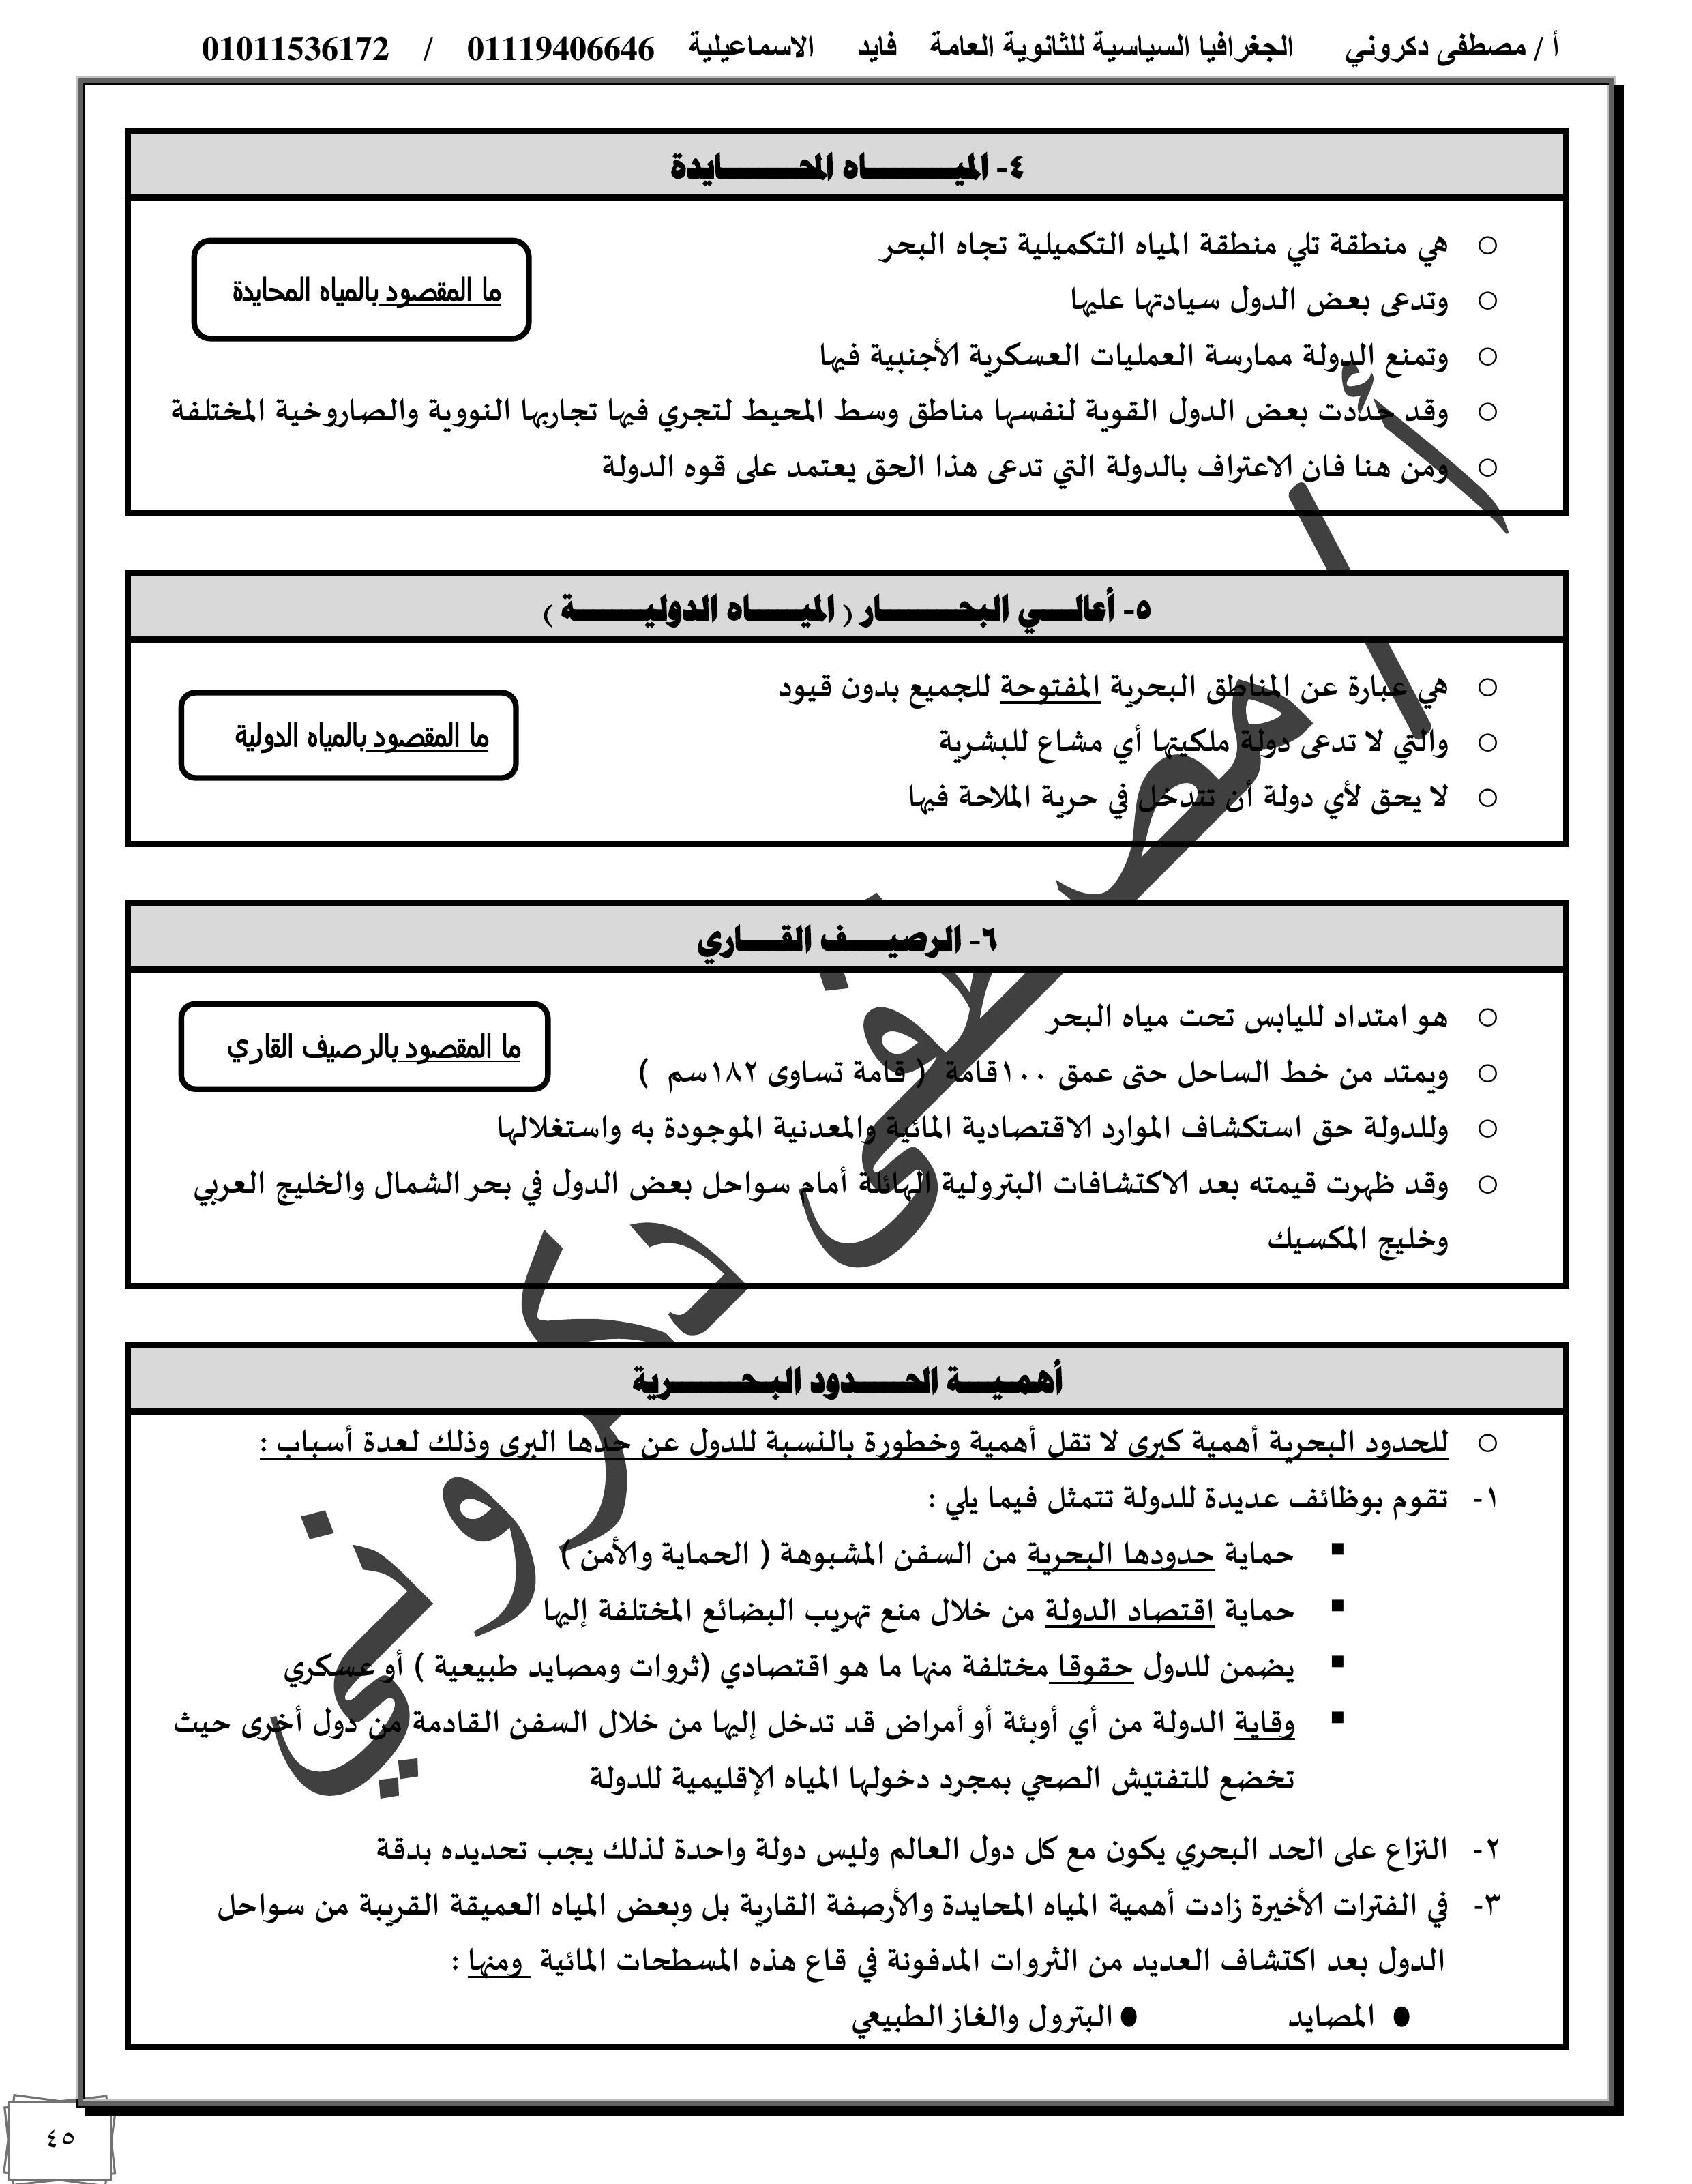 أ / مصطفى دكروني الجغرافيا السياسية للثانوية العامة فايد الاسماعيلية 01119406646 / 01011536172
٤- الميـــــــاه المحــــــــايدة
○ هي منطقة تلي منطقة المياه التكميلية تجاه البحر
○ وتدعى بعض الدول سيادتها عليها
ما المقصود بالمياه المحايدة
○ وتمنع الدولة ممارسة العمليات العسكرية الأجنبية فيها
○ وقد حددت بعض الدول القوية لنفسها مناطق وسط المحيط لتجري فيها تجاربها النووية والصاروخية المختلفة
○ ومن هنا فان الاعتراف بالدولة التي تدعى هذا الحق يعتمد على قوه الدولة
٥- أعالـــي البحــــــــار ( الميـــــاه الدوليـــــــة )
○ هي عبارة عن المناطق البحرية المفتوحة للجميع بدون قيود
○ والتي لا تدعى دولة ملكيتها أي مشاع للبشرية
ما المقصود بالمياه الدولية
○ لا يحق لأي دولة أن تتدخل في حرية الملاحة فيها
٦- الرصيــــف القــــاري
○ هو امتداد لليابس تحت مياه البحر
ما المقصود بالرصيف القاري
○ ويمتد من خط الساحل حتى عمق ١٠٠قامة ( قامة تساوى ١٨٢سم )
○ وللدولة حق استكشاف الموارد الاقتصادية المائية والمعدنية الموجودة به واستغلالها
○ وقد ظهرت قيمته بعد الاكتشافات البترولية الهائلة أمام سواحل بعض الدول في بحر الشمال والخليج العربي
وخليج المكسيك
أهميــــة الحـــــدود البحــــــــرية
○ للحدود البحرية أهمية كبرى لا تقل أهمية وخطورة بالنسبة للدول عن حدها البرى وذلك لعدة أسباب :
١- تقوم بوظائف عديدة للدولة تتمثل فيما يلي :
▪ حماية حدودها البحرية من السفن المشبوهة ( الحماية والأمن )
▪ حماية اقتصاد الدولة من خلال منع تهريب البضائع المختلفة إليها
▪ يضمن للدول حقوقا مختلفة منها ما هو اقتصادي (ثروات ومصايد طبيعية ) أو عسكري
▪ وقاية الدولة من أي أوبئة أو أمراض قد تدخل إليها من خلال السفن القادمة من دول أخرى حيث
تخضع للتفتيش الصحي بمجرد دخولها المياه الإقليمية للدولة
٢- النزاع على الحد البحري يكون مع كل دول العالم وليس دولة واحدة لذلك يجب تحديده بدقة
٣- في الفترات الأخيرة زادت أهمية المياه المحايدة والأرصفة القارية بل وبعض المياه العميقة القريبة من سواحل
الدول بعد اكتشاف العديد من الثروات المدفونة في قاع هذه المسطحات المائية ومنها :
● المصايد ● البترول والغاز الطبيعي
أ / مصطفى دكروني
٤٥